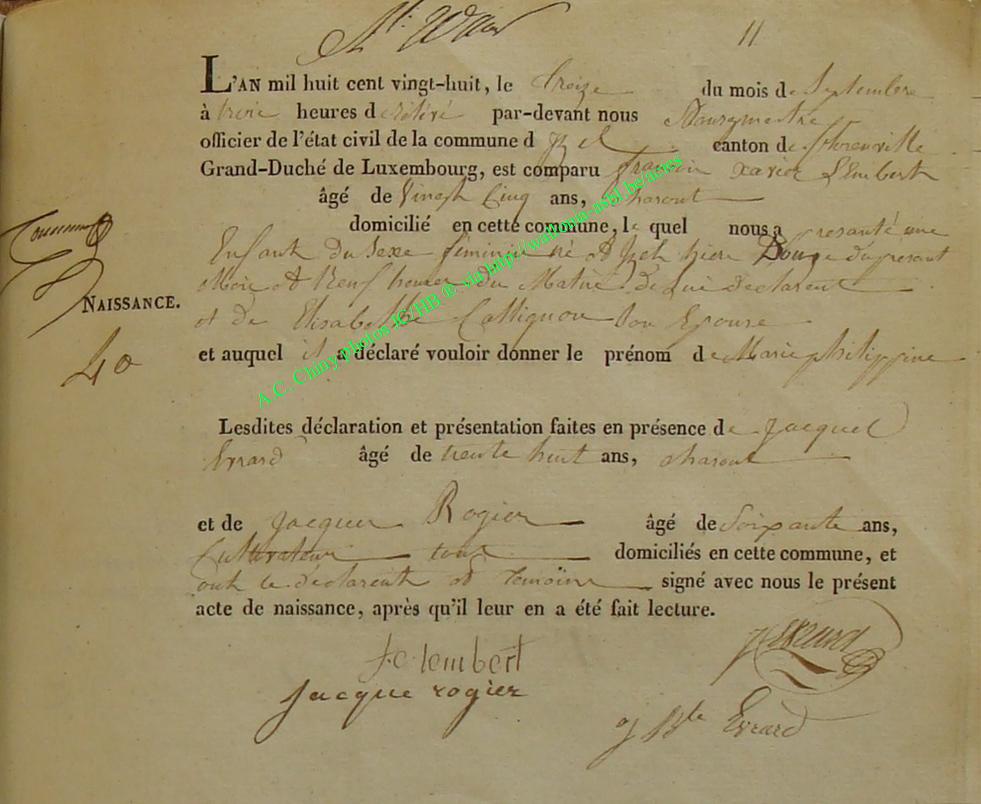 11
L'AN mil huit cent vingt-huit, le treize du mois de Septembre
à trois heures d par-devant nous Bourgmestre
officier de l'état civil de la commune d Izel canton de florenville
Grand-Duché de Luxembourg, est comparu françois xavier Lembert
âgé de Vingt Cinq ans, charont
domicilié en cette commune, le quel nous a presanté une
Enfant du Sexe féminin né à Izel hier Douze du presant
Mois et Neuf heures du Matin de lui declarent
et de Elisabethe Calliguon Son Epouse
et auquel il a déclaré vouloir donner le prénom de Marie philippine
NAISSANCE.
40
Lesdites déclaration et présentation faites en présence de Jacques
Evrard âgé de trente huit ans, charont
et de Jacques Rogier âgé de Soixante ans,
Cultivateur tous domiciliés en cette commune, et
ont le déclarent et temoins signé avec nous le présent
acte de naissance, après qu'il leur en a été fait lecture.
lembert
Jacque rogier
J Bte Evrard
A.C. Chiny photos IG/HB ® via http://wallonia-asbl.be/actes